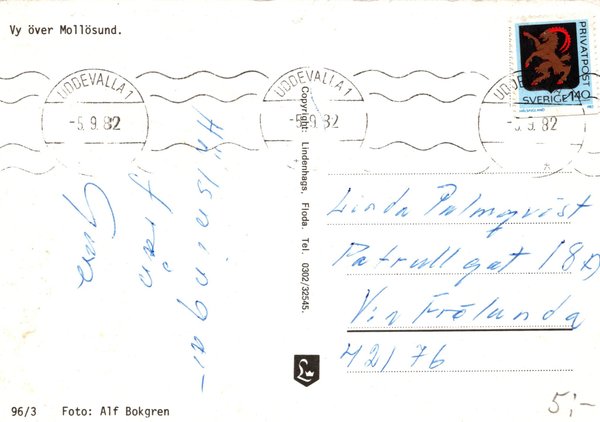 Vy över Mollösund.
UDDEVALLA 1
-5.9.82
UDDEVALLA 1
-5.9.82
UDDEVALLA
-5.9.82
PRIVATPOST
SVERIGE 140
Hälsningar
från
Copyright: Lindenhags, Floda. Tel. 0302/32545.
Linda Palmqvist
Patrullgat 18D
V:a Frölunda
421 76
L
96/3 Foto: Alf Bokgren
5:-